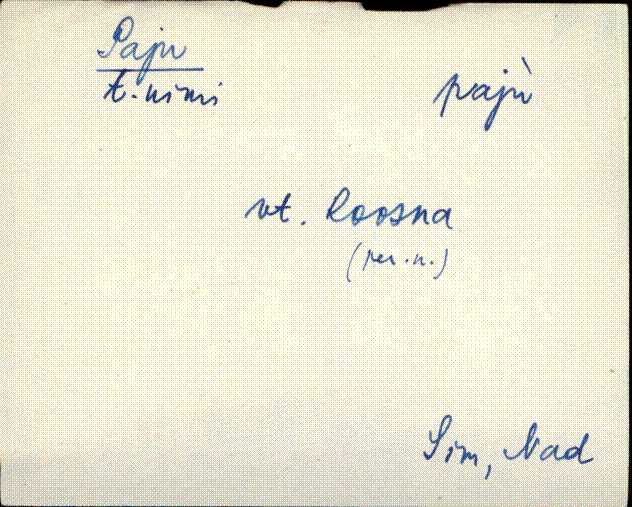 Paju
t. nimi
pajù
vt. Roosna
(per. n.)
Sim, Nad